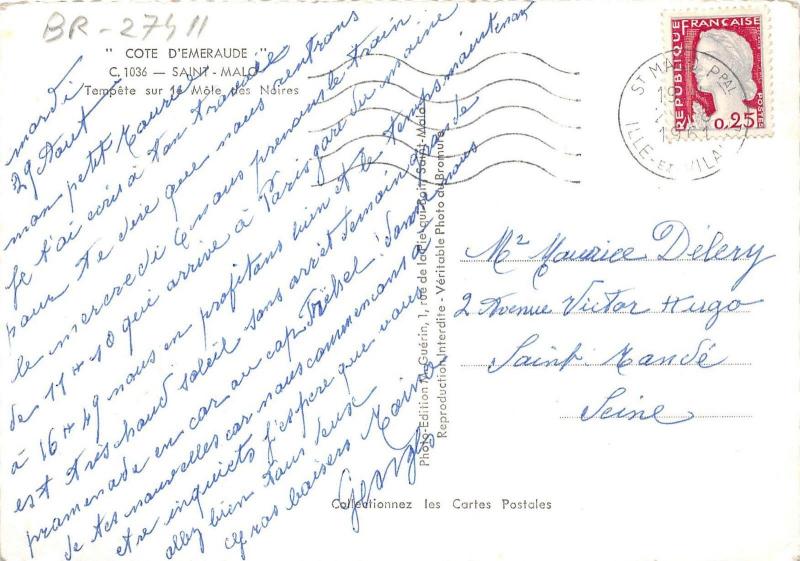 BR-27411
" COTE D'EMERAUDE "
C. 1036 — SAINT-MALO
Tempête sur le Môle des Noires
mardi
29 Aout
mon petit Maurice
Je t'ai écris à ton travail
pour te dire que nous rentrons
le mercredi 6 nous prenons le train
de 11H10 qui arrive à Paris gare du maine
à 16H49 nous en profitons bien et le temps maintenant
est très chaud soleil sans arrêt demain grande
promenade en car au cap Fréhel. Donne nous
de tes nouvelles car nous commençons à
etre inquiets j'espère que vous
allez bien tous deux
Gros baisers
Georges
Photo-Edition A. Guérin, 1, rue de la Pie qui Boit, Saint-Malo
Reproduction Interdite - Véritable Photo au Bromure
Collectionnez les Cartes Postales
REPUBLIQUE FRANÇAISE
POSTES
0,25
ST MALO PPAL
1961
ILLE-ET-VILAINE
Mr Maurice Délery
2 Avenue Victor Hugo
Saint Mandé
Seine